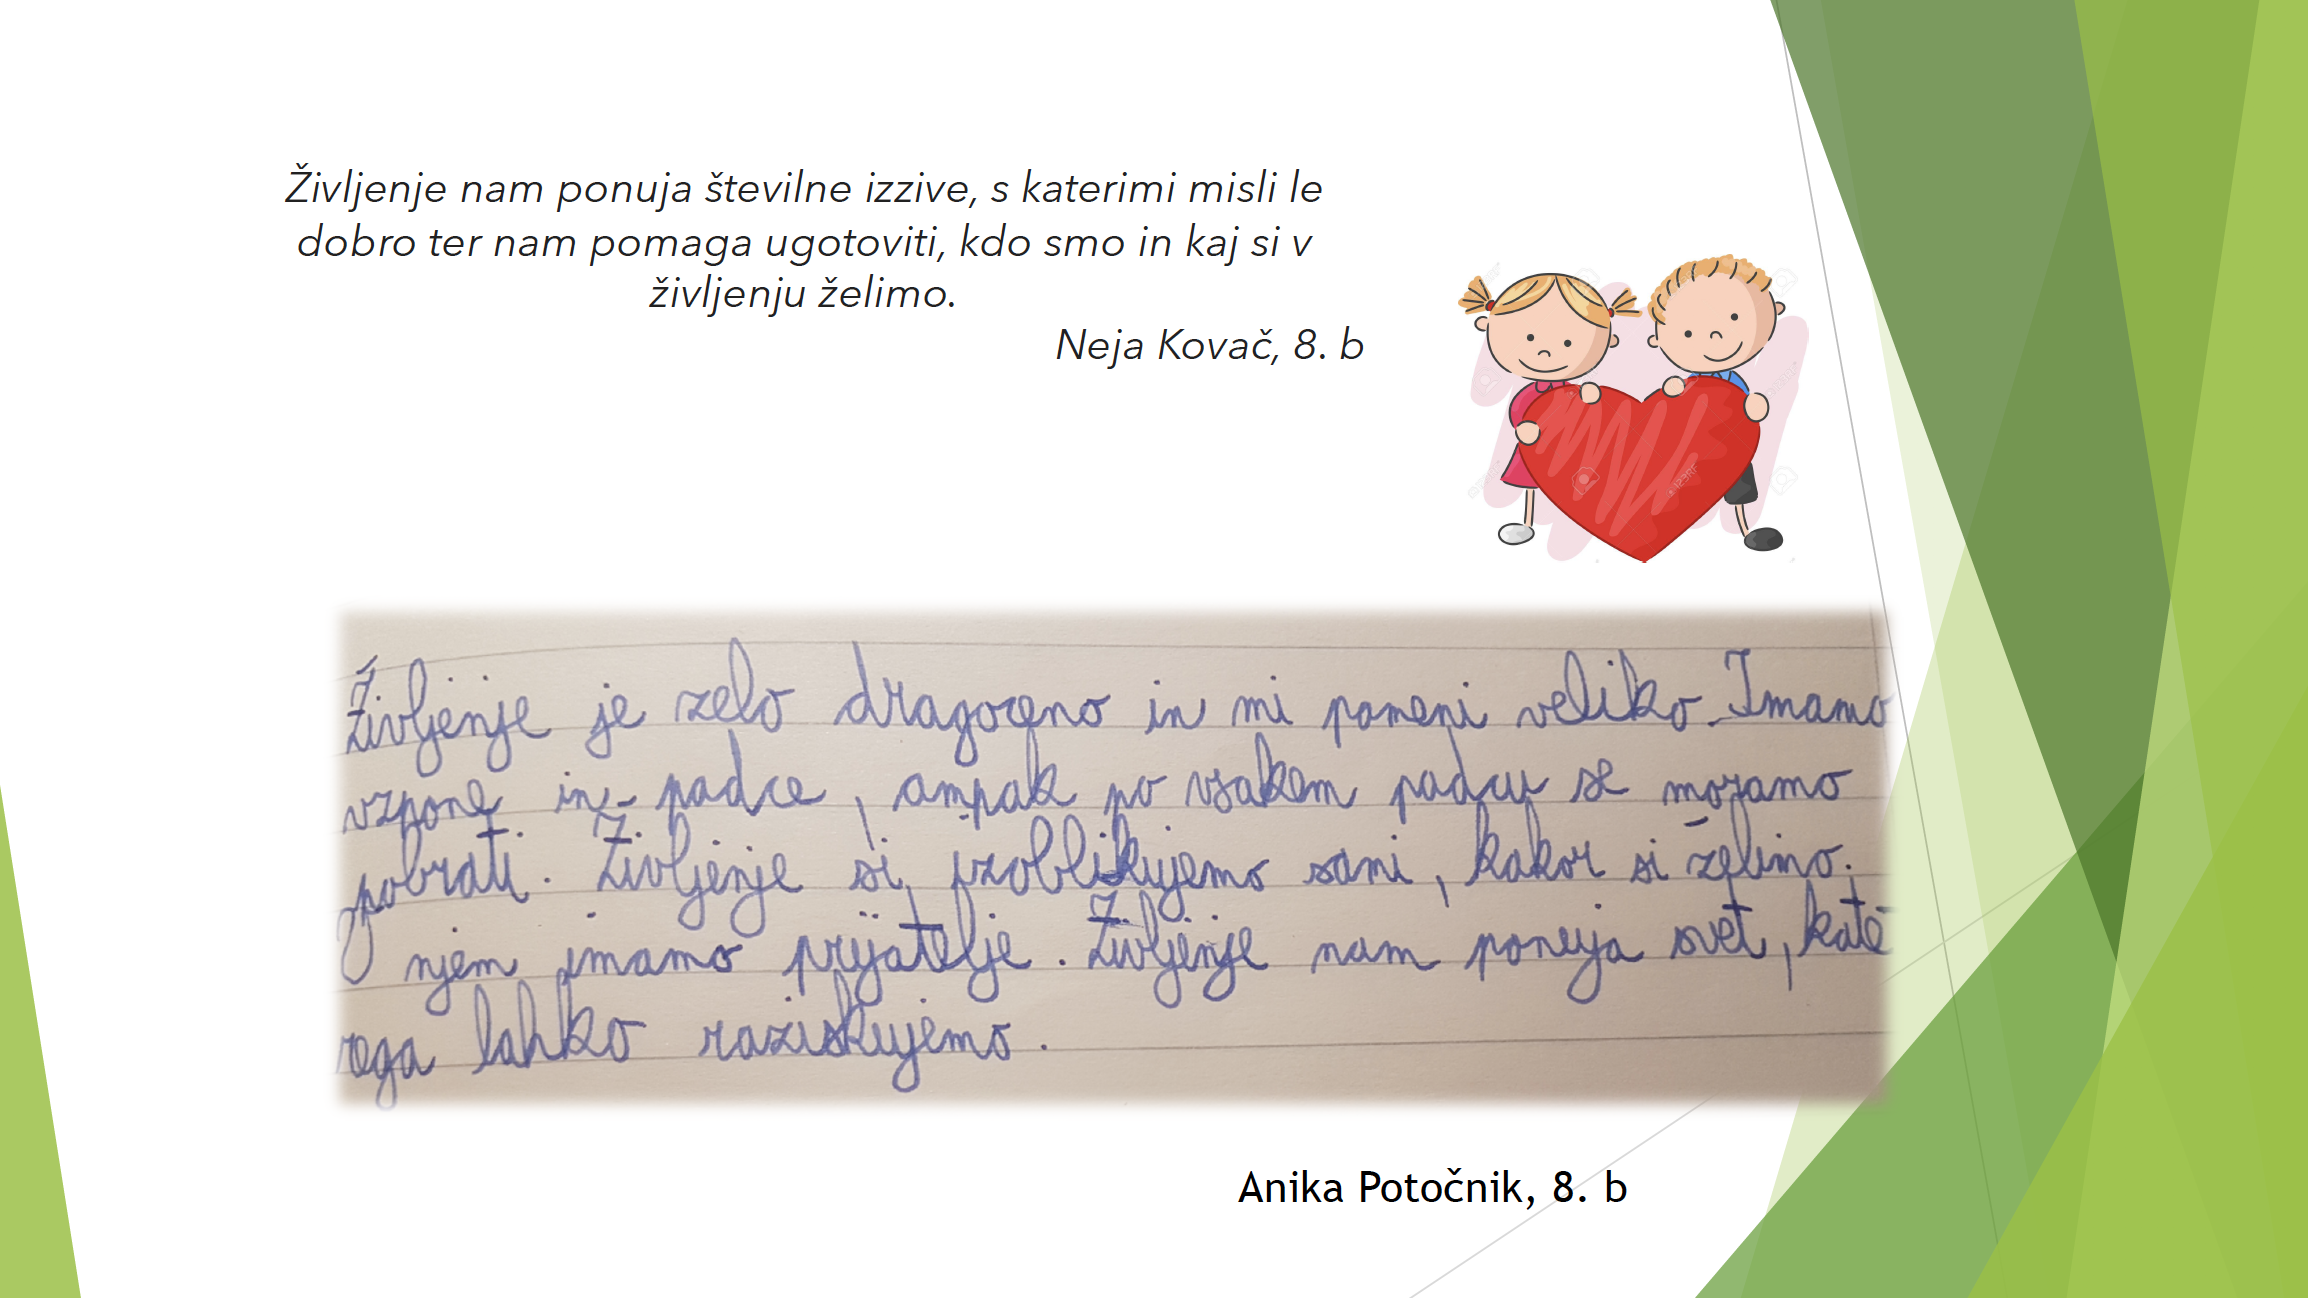 Življenje nam ponuja številne izzive, s katerimi misli le
dobro ter nam pomaga ugotoviti, kdo smo in kaj si v
življenju želimo.
Neja Kovač, 8. b
Življenje je zelo dragoceno in mi pomeni veliko. Imamo
vzpone in padce, ampak po vsakem padcu se moramo
pobrati. Življenje si izoblikujemo sami, kakor si želimo.
V njem imamo prijatelje. Življenje nam ponuja svet, kate
rega lahko raziskujemo.
Anika Potočnik, 8. b